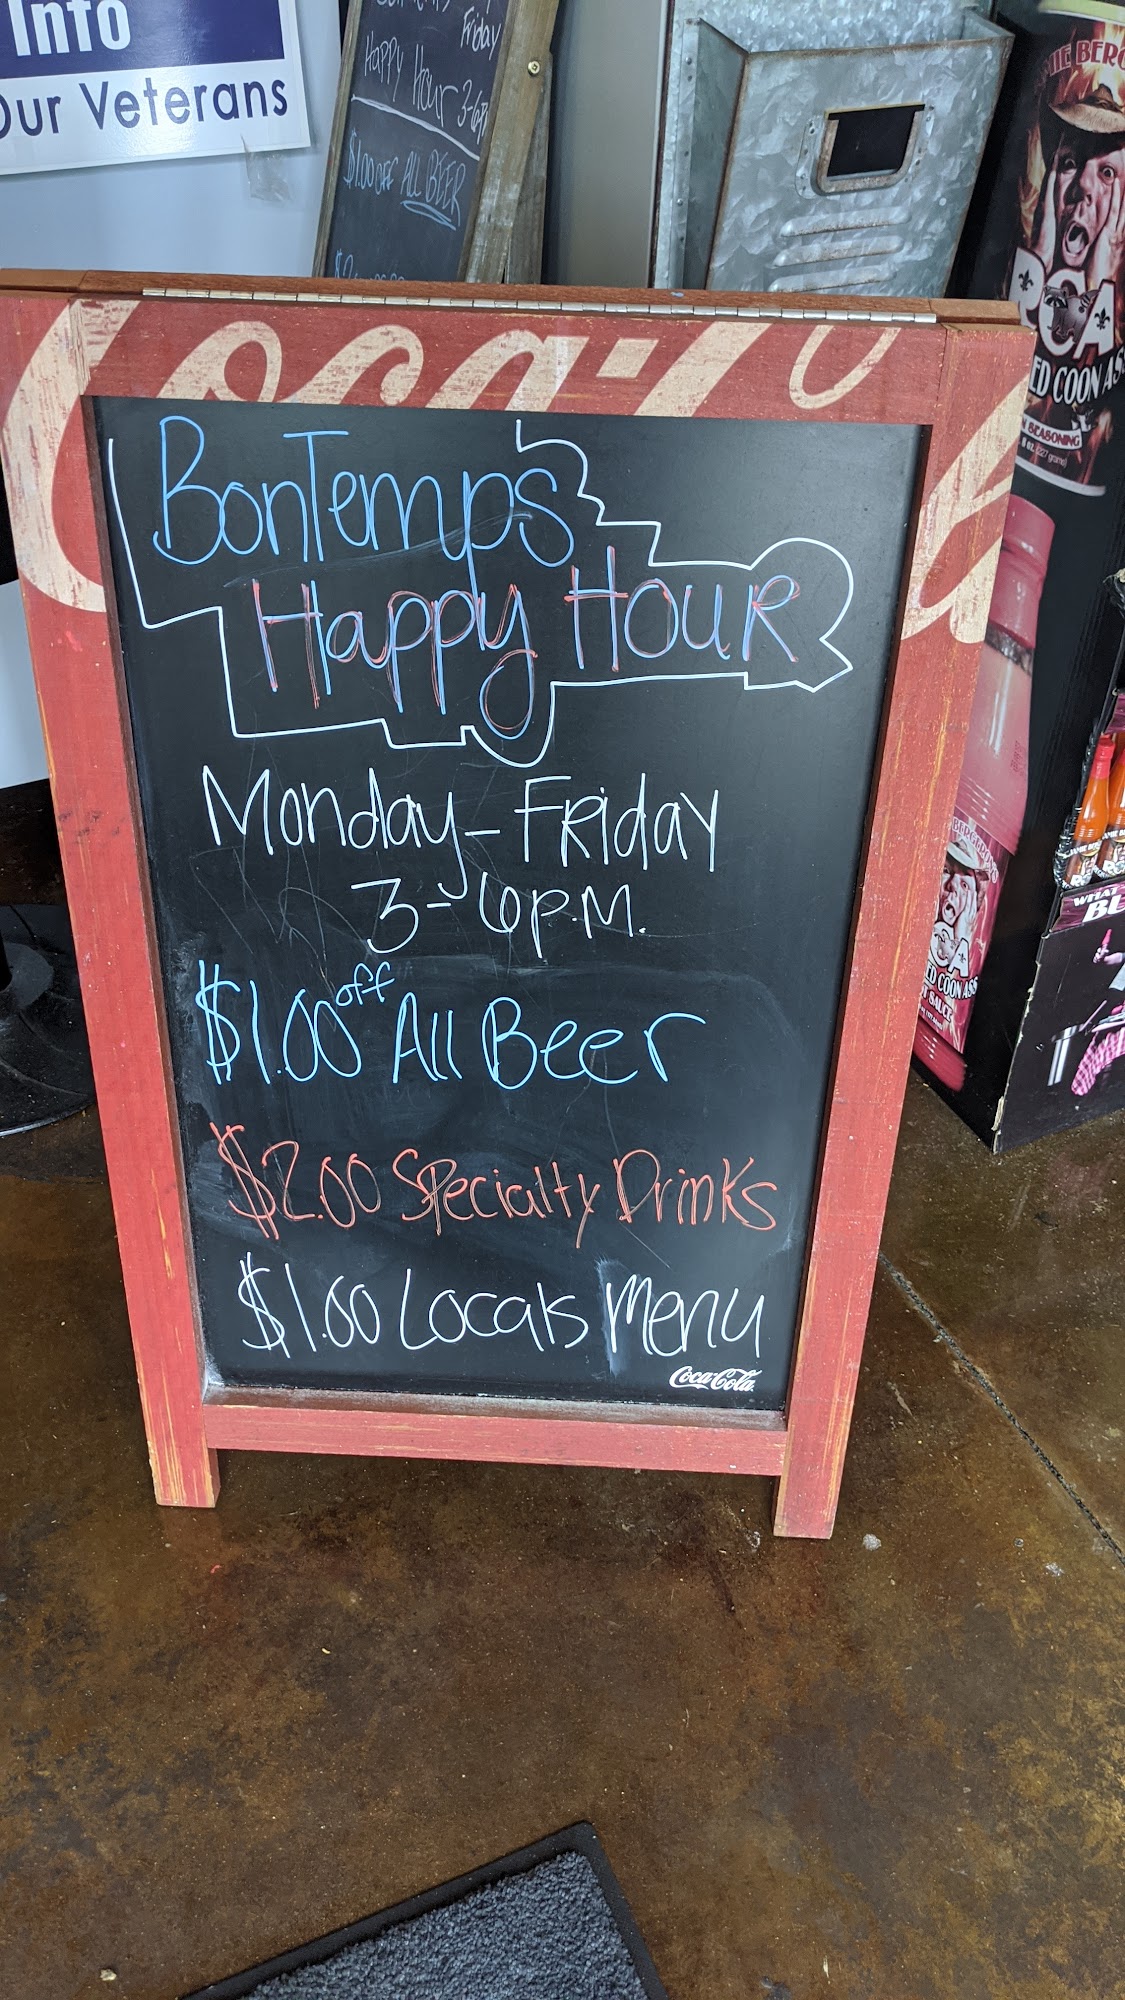 Info
Our Veterans
Friday
Happy Hour 3-6P
$1.00 OFF ALL BEER
BonTemps
Happy Hour
Monday-Friday
3-6 P.M.
$1.00 off All Beer
$2.00 Specialty Drinks
$1.00 Locals Menu
Coca-Cola
ROCA
ED COON ASS
SEASONING
8 oz. (227 grams)
BERGERON'S
ED COON ASS
SAUCE
WHAT
BU